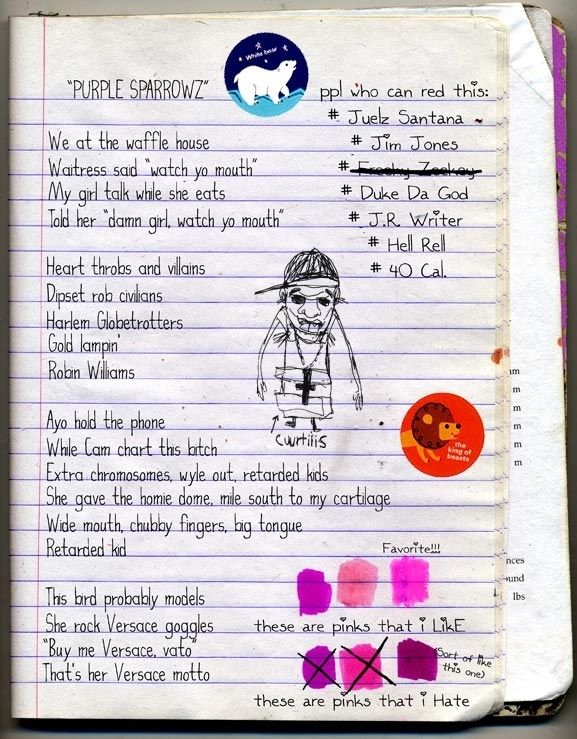 White bear
"PURPLE SPARROWZ"
ppl who can red this:
# Juelz Santana
# Jim Jones
# Freeky Zeekey
# Duke Da God
# J.R. Writer
# Hell Rell
# 40 Cal.
We at the waffle house
Waitress said "watch yo mouth"
My girl talk while she eats
Told her "damn girl, watch yo mouth"
Heart throbs and villains
Dipset rob civilians
Harlem Globetrotters
Gold lampin'
Robin Williams
Cuurtilis
the
king of
beasts
Ayo hold the phone
While Cam chart this bitch
Extra chromosomes, wyle out, retarded kids
She gave the homie dome, mile south to my cartilage
Wide mouth, chubby fingers, big tongue
Retarded kid
Favorite!!!
This bird probably models
She rock Versace goggles
"Buy me Versace, vato"
That's her Versace motto
these are pinks that i LiKE
(Sort of like
this one)
these are pinks that i Hate
m
m
m
m
nces
ound
lbs